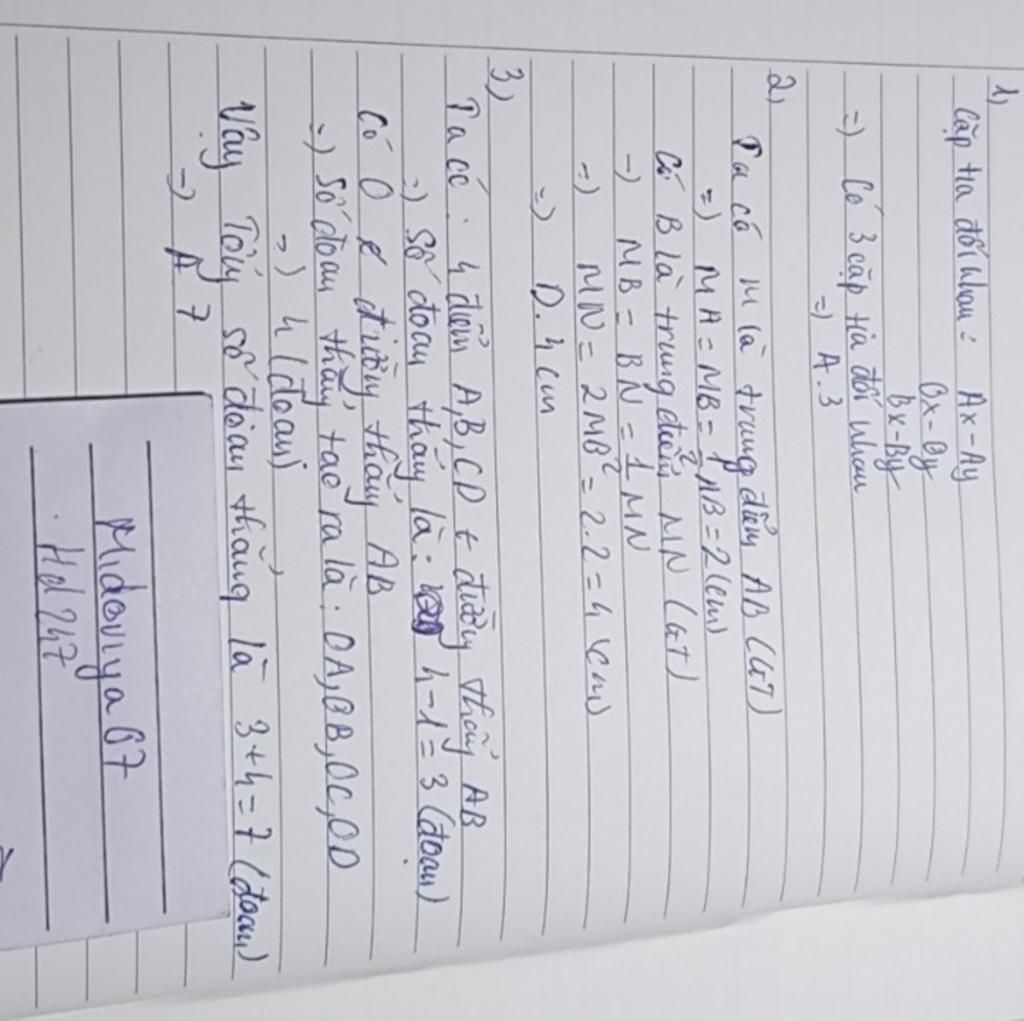 1)
Cặp tia đối nhau: Ax-Ay
Ox-Oy
Bx-By
=) Có 3 cặp tia đối nhau
=) A.3
2)
Ta có M là trung điểm AB (GT)
=) MA = MB = 1/2 AB = 2 (cm)
Có B là trung điểm MN (GT)
-) MB = BN = 1/2 MN
=) MN = 2MB = 2.2 = 4 (cm)
=) D.4cm
3)
Ta có: 4 điểm A,B,C,D t đường thẳng AB
=) Số đoạn thẳng là: 4-1 = 3 (đoạn)
Có O đường thẳng AB
=) Số đoạn thẳng tạo ra là: OA, OB, OC, OD
=) 4 (đoạn)
Vậy Tổng số đoạn thẳng là 3+4=7 (đoạn)
=) A 7
Midoriya67
Hd247